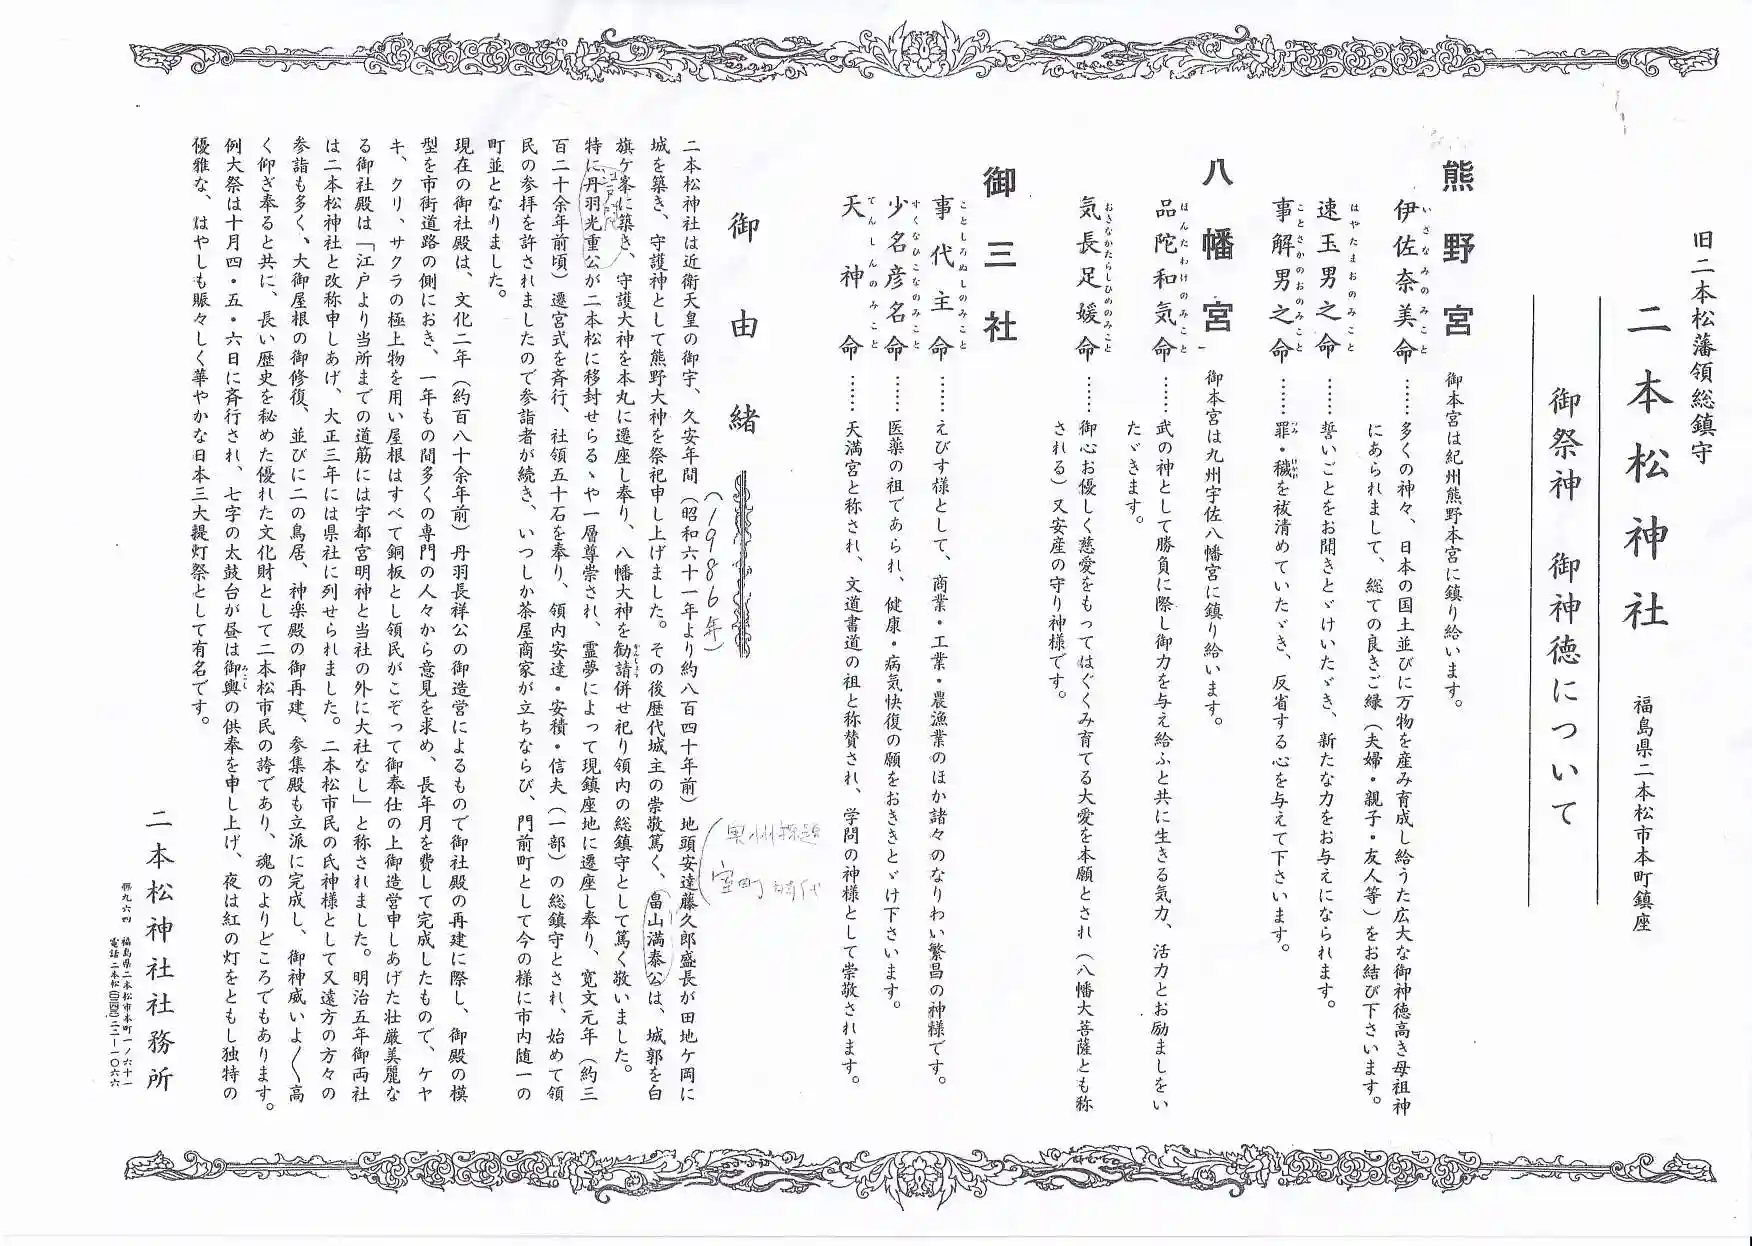 旧二本松藩領総鎮守
二本松神社
福島県二本松市本町鎮座
御祭神　御神徳について
熊野宮
御本宮は紀州熊野本宮に鎮り給います。
伊佐奈美命
いさなみのみこと
……多くの神々、日本の国土並びに万物を産み育成し給うた広大な御神徳高き母祖神
にあられまして、総ての良きご縁（夫婦・親子・友人等）をお結び下さいます。
速玉男之命
はやたまおのみこと
……誓いごとをお聞きとゞけいたゞき、新たな力をお与えになられます。
事解男之命
ことさかのおのみこと
……罪・穢を祓清めていたゞき、反省する心を与えて下さいます。
つみ
けがれ
八幡宮
御本宮は九州宇佐八幡宮に鎮り給います。
品陀和気命
ほんたわけのみこと
……武の神として勝負に際し御力を与え給ふと共に生きる気力、活力とお励ましをい
たゞきます。
気長足媛命
おきなかたらしひめのみこと
……御心お優しく慈愛をもってはぐくみ育てる大愛を本願とされ（八幡大菩薩とも称
される）又安産の守り神様です。
御三社
事代主命
ことしろぬしのみこと
……えびす様として、商業・工業・農漁業のほか諸々のなりわい繁昌の神様です。
少名彦名命
すくなひこなのみこと
……医薬の祖であられ、健康・病気快復の願をおききとゞけ下さいます。
天神命
てんしんのみこと
……天満宮と称され、文道書道の祖と称賛され、学問の神様として崇敬されます。
御由緒
（1986年）
奥州探題
室町時代
二本松神社は近衛天皇の御宇、久安年間（昭和六十一年より約八百四十年前）地頭安達藤久郎盛長が田地ケ岡に
城を築き、守護神として熊野大神を祭祀申し上げました。その後歴代城主の崇敬篤く、畠山満泰公は、城郭を白
旗ケ峯に築き、守護大神を本丸に遷座し奉り、八幡大神を勧請併せ祀り領内の総鎮守として篤く敬いました。
かんじょう
江戸時代
特に丹羽光重公が二本松に移封せらるゝや一層尊崇され、霊夢によって現鎮座地に遷座し奉り、寛文元年（約三
百二十余年前頃）遷宮式を斉行、社領五十石を奉り、領内安達・安積・信夫（一部）の総鎮守とされ、始めて領
民の参拝を許されましたので参詣者が続き、いつしか茶屋商家が立ちならび、門前町として今の様に市内随一の
町並となりました。
現在の御社殿は、文化二年（約百八十余年前）丹羽長祥公の御造営によるもので御社殿の再建に際し、御殿の模
型を市街道路の側におき、一年もの間多くの専門の人々から意見を求め、長年月を費して完成したもので、ケヤ
キ、クリ、サクラの極上物を用い屋根はすべて銅板とし領民がこぞって御奉仕の上御造営申しあげた壮厳美麗な
る御社殿は「江戸より当所までの道筋には宇都宮明神と当社の外に大社なし」と称されました。明治五年御両社
は二本松神社と改称申しあげ、大正三年には県社に列せられました。二本松市民の氏神様として又遠方の方々の
参詣も多く、大御屋根の御修復、並びに二の鳥居、神楽殿の御再建、参集殿も立派に完成し、御神威いよ〱高
く仰ぎ奉ると共に、長い歴史を秘めた優れた文化財として二本松市民の誇であり、魂のよりどころでもあります。
例大祭は十月四・五・六日に斉行され、七字の太鼓台が昼は御輿の供奉を申し上げ、夜は紅の灯をともし独特の
みこし
優雅な、はやしも賑々しく華やかな日本三大提灯祭として有名です。
二本松神社社務所
〒九六四　福島県二本松市本町一ノ六十一
電話二本松(〇二四三)二二-一〇六六